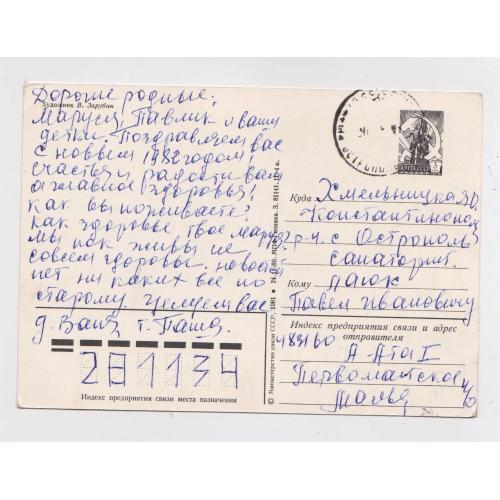 Художник В. Зарубин
Дорогие родные.
Маруся, Павлик и ваши
детки. Поздравляем вас
с новым 1982 годом!
счастья и радости вам
а главное здоровья!
как вы поживаете?
как здоровье твое Маруся?
мы пок живы не
совсем здоровы. новостей
нет ни каких все по
старому. целуем вас
д. Ваня т. Паша.
281134
Индекс предприятия связи места назначения
© Министерство связи СССР, 1981
24.11.80. МПФ Гознака. З. 81141. Ц. 4 к.
ПОЧТА СССР
Куда Хмельницкая
р-н. с. Острополь
санаторий.
Кому
Павел Ивановичу
Индекс предприятия связи и адрес
отправителя
483160
А-Ата I
Первомайское